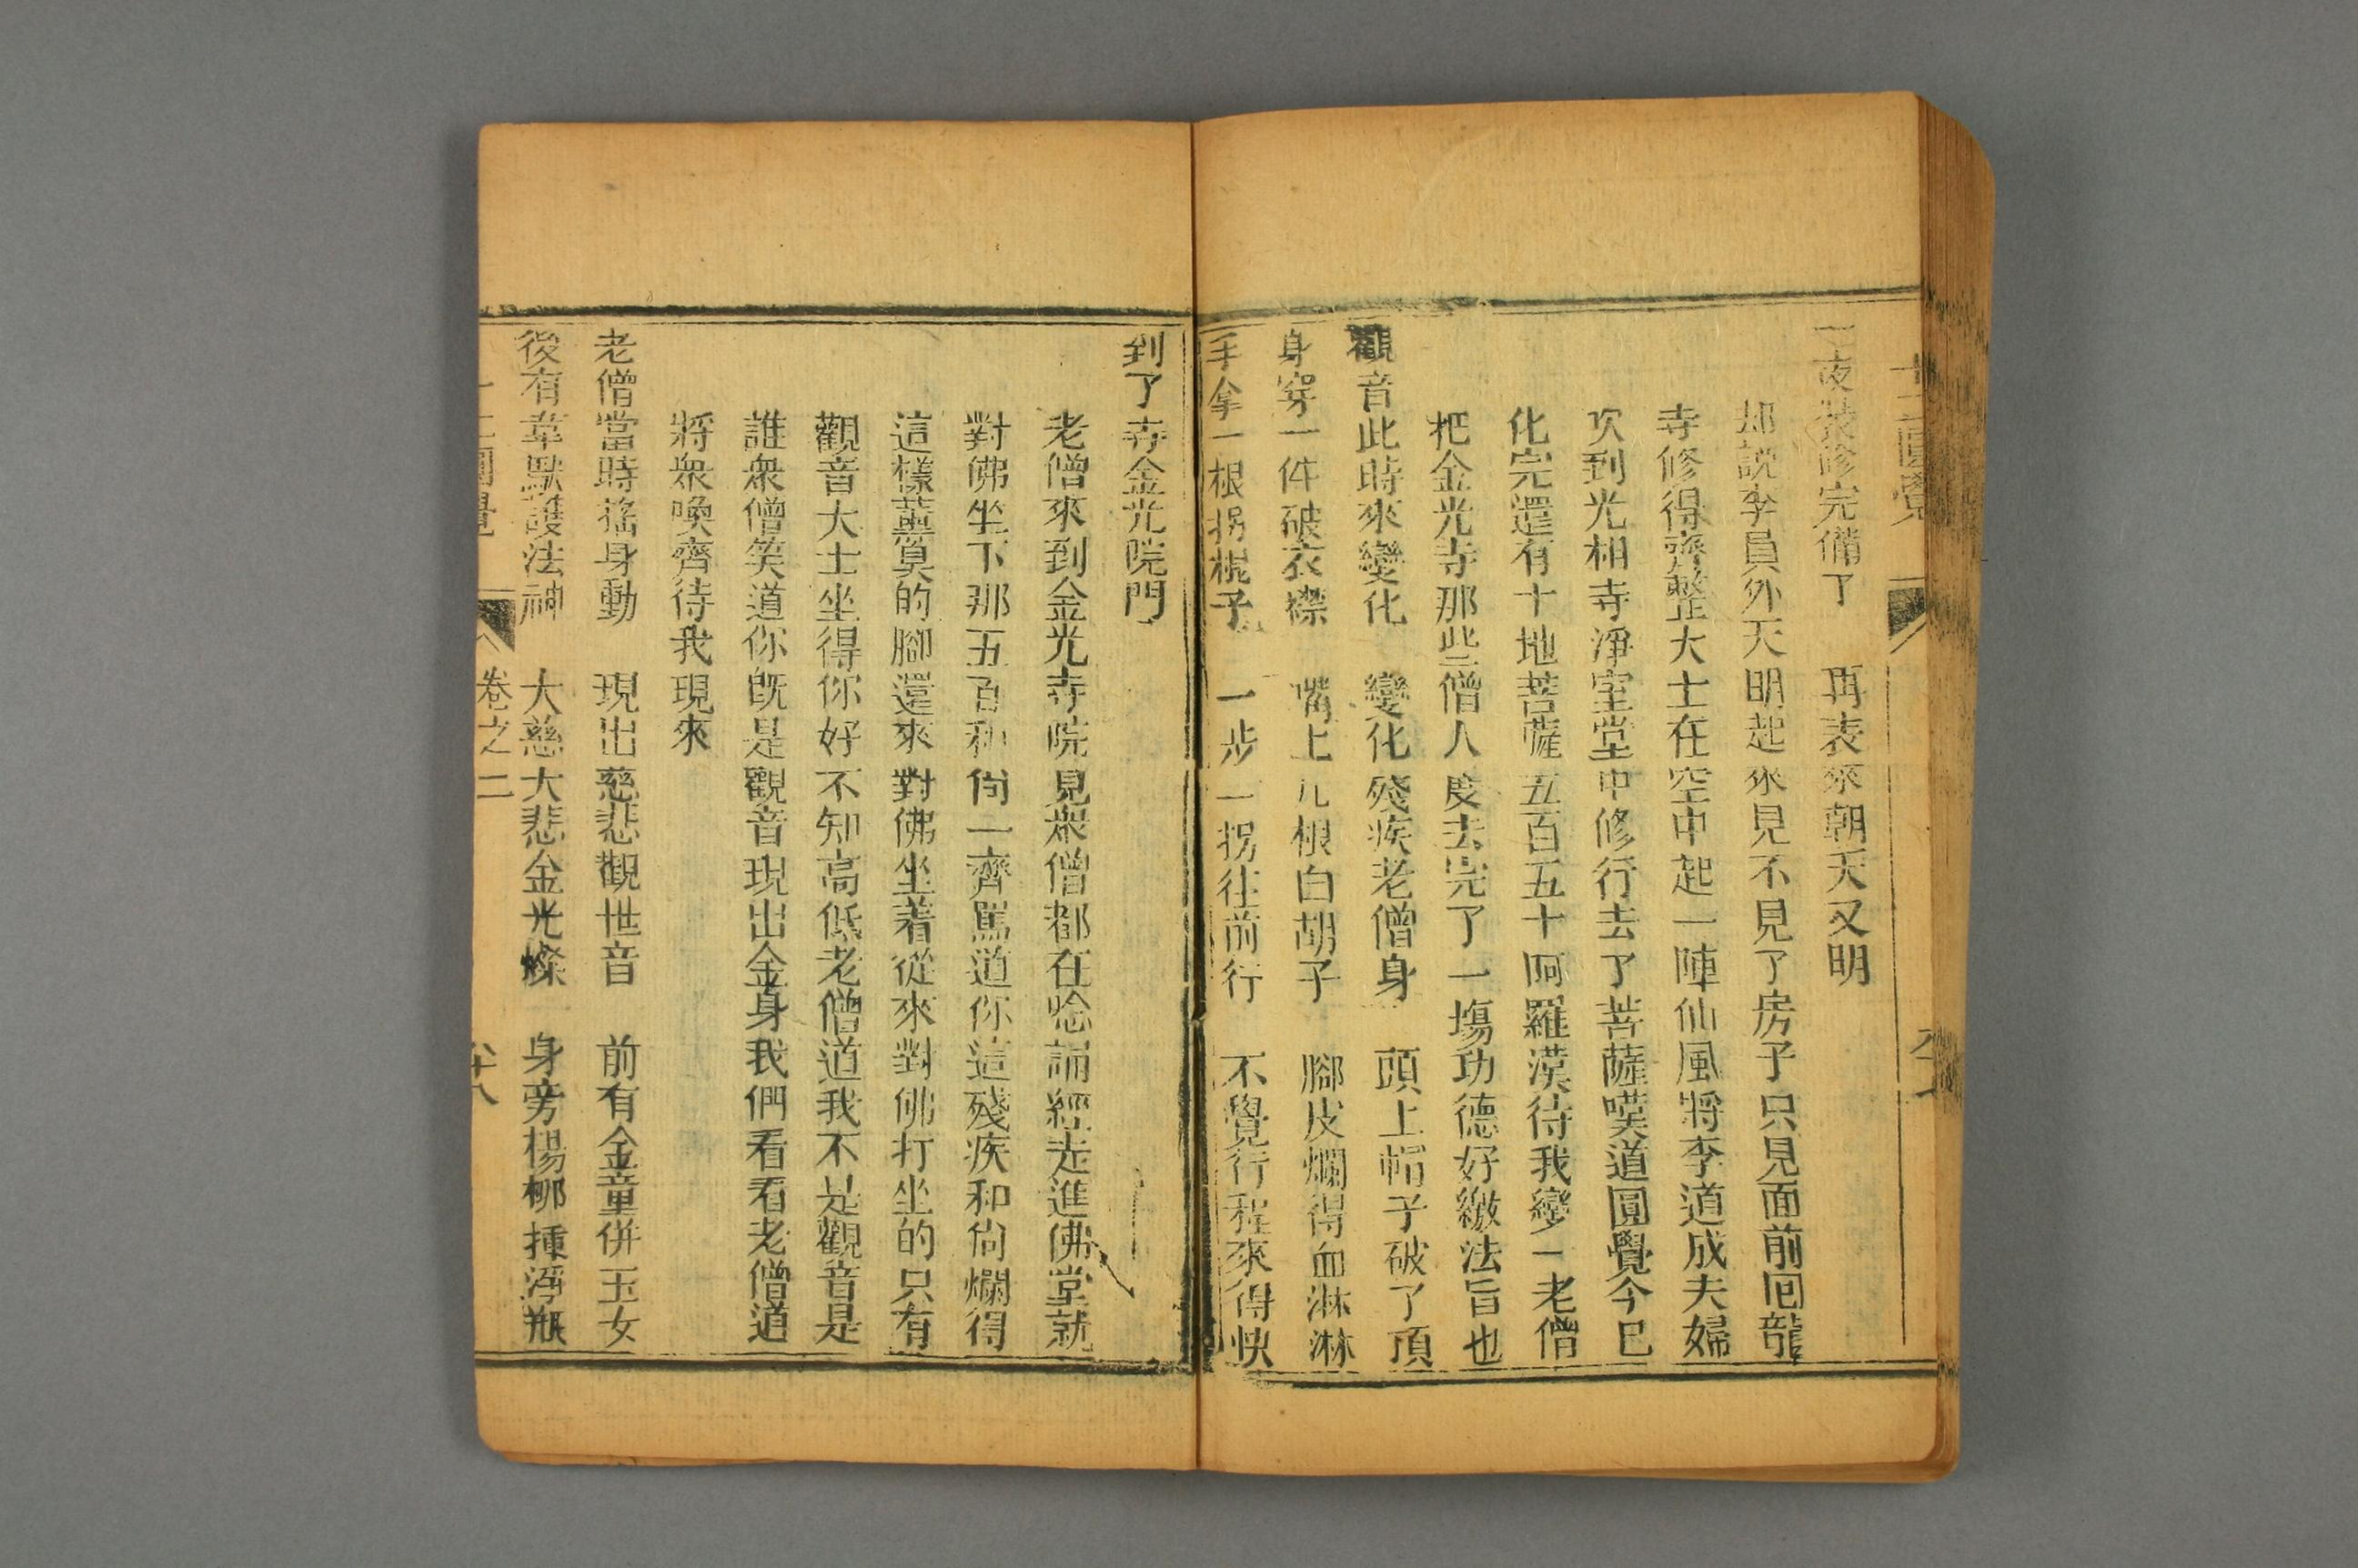 十二圓覺
一夜裝修完備了　再表來朝天又明
却說李員外天明起來見不見了房子只見面前囘龍
寺修得齊整大士在空中起一陣仙風將李道成夫婦
吹到光相寺淨室堂中修行去了菩薩嘆道圓覺今已
化完還有十地菩薩五百五十阿羅漢待我變一老僧
把金光寺那些僧人度去完了一塲功德好繳法旨也
觀音此時來變化　變化殘疾老僧身　頭上帽子破了頂
身穿一件破衣襟　嘴上几根白胡子　腳皮爛得血淋淋
手拿一根拐棍子　一步一拐往前行　不覺行程來得快
到了寺金光院門
老僧來到金光寺院見衆僧都在唸誦經走進佛堂就
對佛坐下那五百和尙一齊罵道你這殘疾和尙爛得
這樣葷臭的腳還來對佛坐着從來對佛打坐的只有
觀音大士坐得你好不知高低老僧道我不是觀音是
誰衆僧笑道你旣是觀音現出金身我們看看老僧道
將衆喚齊待我現來
老僧當時搖身動　現出慈悲觀世音　前有金童併玉女
後有韋馱護法神　大慈大悲金光燦　身旁楊柳揰淨瓶
十二圓覺　卷之二　六十八